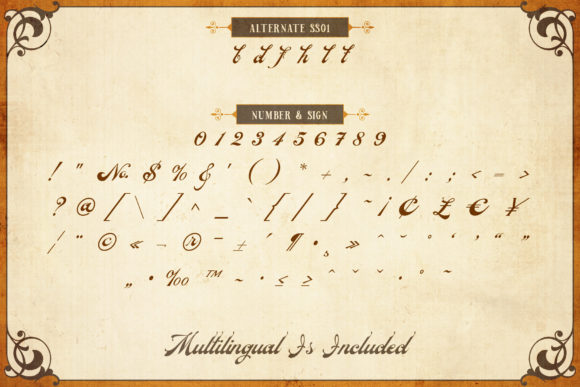 ALTERNATE SS01
b d f h l t
NUMBER & SIGN
0 1 2 3 4 5 6 7 8 9
! " No. $ % & ' ( ) * + , - . / : ; < = >
? @ [ \ ] ^ _ ` { | } ~ ¡ ¢ £ € ¥
¦ ¨ © « ¬ ® ¯ ± ´ ¶ • ¸ » ˆ ˇ ° ‘ ‚ “ ”
„ • ‰ ™ ~ · ≤ ≥ ˆ ˇ ˘ · ° ˜
Multilingual Is Included